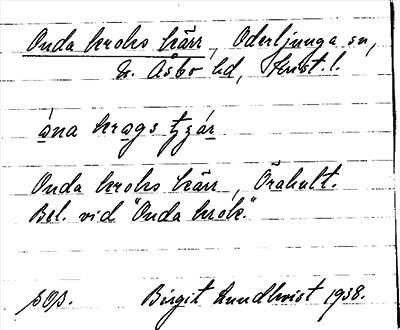 Onda kroks kärr, Oderljunga sn,
N. Åsbo hd, Krist. l.
ána krogs tʒár
Onda kroks kärr, Örahult.
Bel. vid "Onda krok."
Birgit Lundkvist 1938.